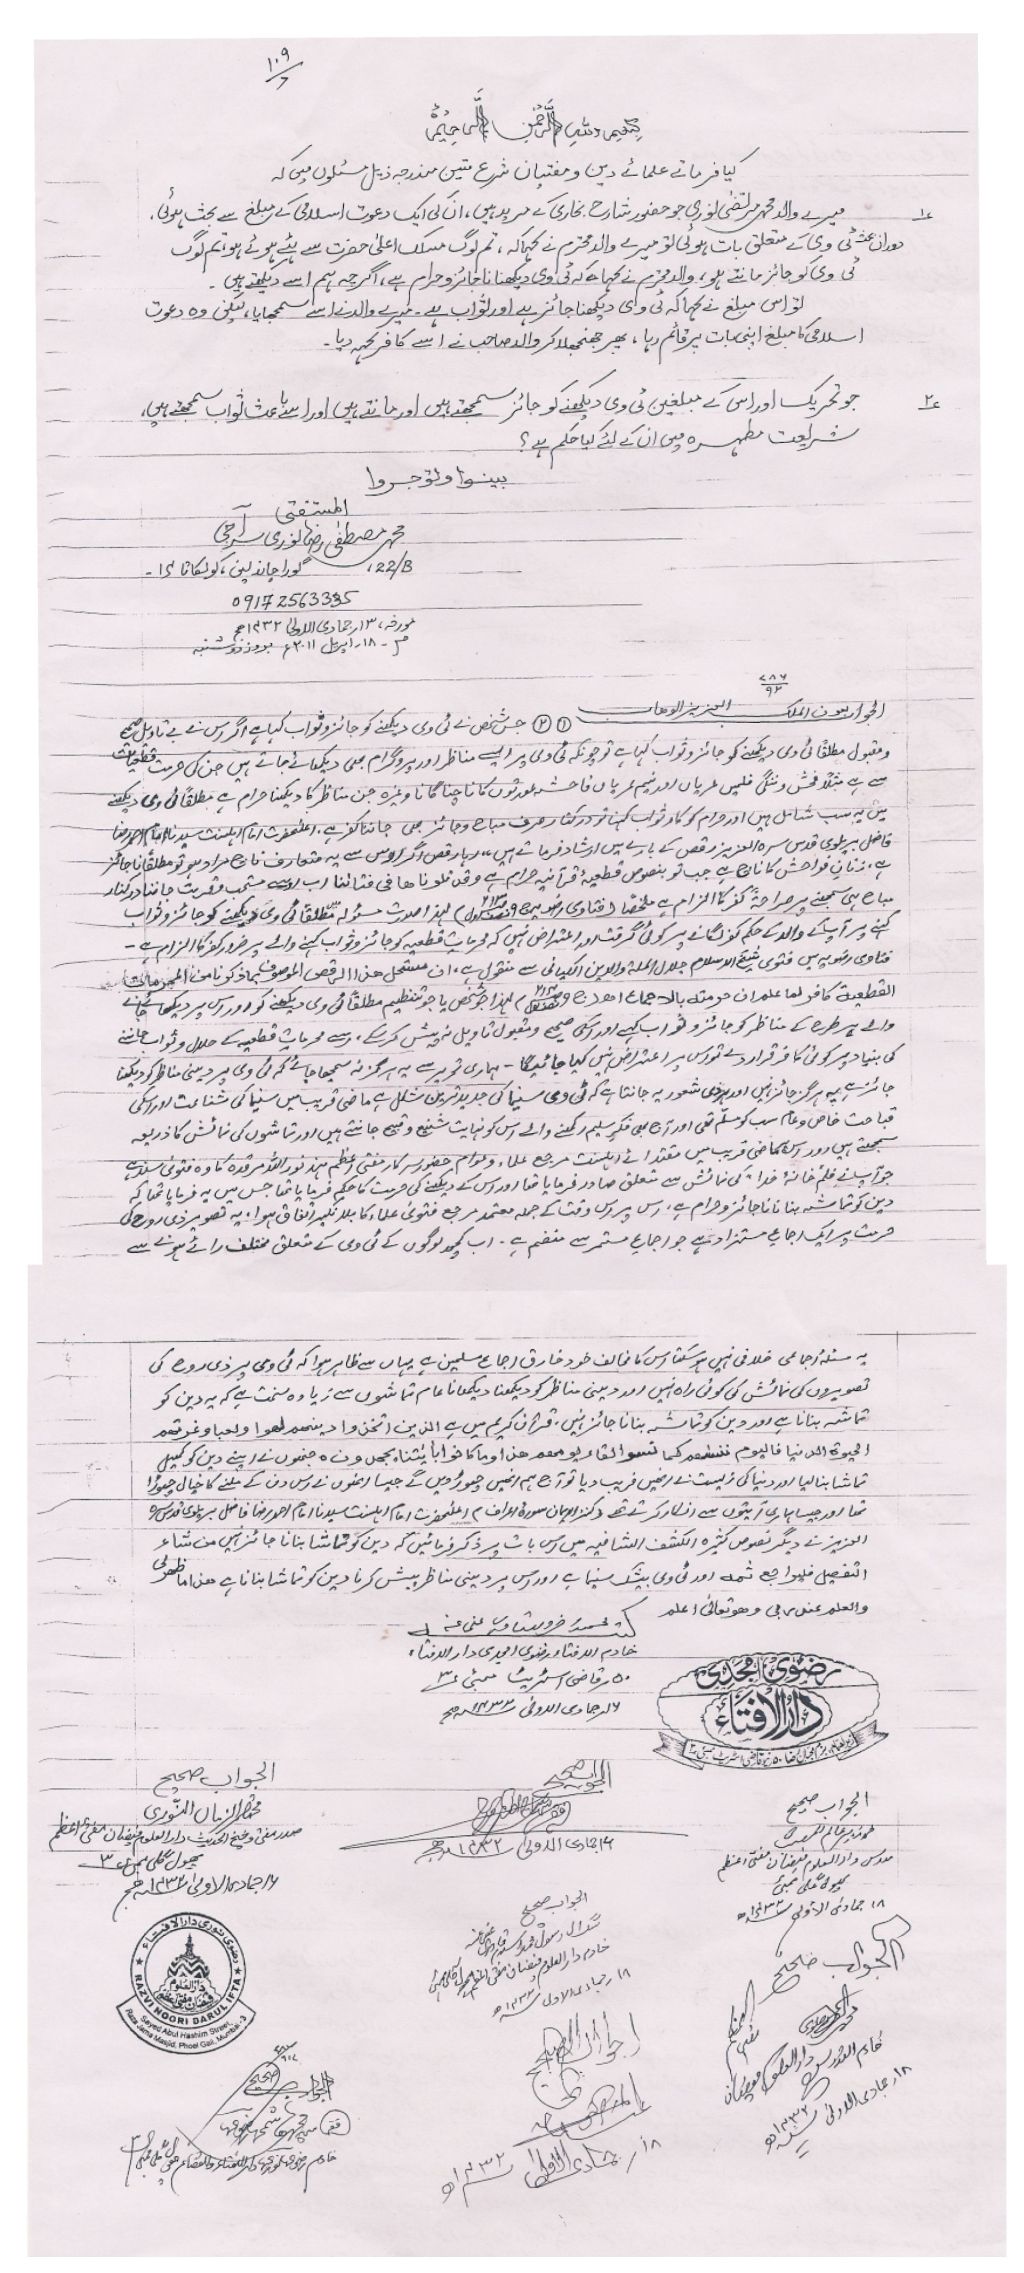 ۱۰۹/۷
بسم اللہ الرحمٰن الرحیم
کیا فرماتے علمائے دین و مفتیان شرع متین مندرجہ ذیل مسئلوں میں کہ
۱؎ میرے والد محمد مرتضیٰ نوری جو حضور شارح بخاری کے مرید ہیں، ان کی ایک دعوت اسلامی کے مبلغ سے بحث ہوئی۔
دوران بحث ٹی وی کے متعلق بات ہوئی تو میرے والد محترم نے کہا کہ، تم لوگ مسلک اعلیٰ حضرت سے ہٹے ہوئے ہو، تم لوگ
ٹی وی کو جائز مانتے ہو، والد محترم نے کہا کہ ٹی وی دیکھنا ناجائز و حرام ہے، اگرچہ ہم اسے دیکھتے ہیں۔
تو اس مبلغ نے کہا کہ ٹی وی دیکھنا جائز ہے اور ثواب ہے۔ میرے والد نے اسے سمجھایا، لیکن وہ دعوت
اسلامی کا مبلغ اپنی بات پر قائم رہا، پھر جھنجھلا کر والد صاحب نے اسے کافر کہہ دیا۔
۲؎ جو تحریک اور اس کے مبلغین ٹی وی دیکھنے کو جائز سمجھتے ہیں اور مانتے ہیں اور اسے باعث ثواب سمجھتے ہیں،
شریعت مطہرہ میں ان کے لئے کیا حکم ہے؟
بینوا وتوجروا
المستفتی
محمد مصطفیٰ رضا نوری سراجی
22/B، گورا چاند لین، کولکاتا ۱۴۔
09172563335
مورخہ، ۱۳ جمادی الاولیٰ ۱۴۳۲ھ
م۔ ۱۸۔ اپریل ۲۰۱۱ء بروز دوشنبہ
۷۸۶/۹۲
الجواب بعون الملک العزیز الوھاب ① ② جس شخص نے ٹی وی دیکھنے کو جائز و ثواب کہا ہے اگر اس نے بے تاویل صحیح
و مقبول مطلقاً ٹی وی دیکھنے کو جائز و ثواب کہا ہے تو چونکہ ٹی وی پر ایسے مناظر اور پروگرام بھی دیکھائے جاتے ہیں جن کی حرمت قطعیات
سے ہے مثلاً فحش و ننگی فلمیں عریاں اور نیم عریاں فاحشہ عورتوں کا ناچنا گانا وغیرہ جن مناظر کا دیکھنا حرام ہے مطلقاً ٹی وی دیکھنے
میں یہ سب شامل ہیں اور حرام کو کار ثواب کہنا تو درکنار صرف مباح و جائز بھی جاننا کفر ہے۔ اعلیٰحضرت امام اہلسنت سیدنا امام احمد رضا
فاضل بریلوی قدس سرہ العزیز رقص کے بارے میں ارشاد فرماتے ہیں، رہا رقص اگر اس سے یہ متعارف ناچ مراد ہو تو مطلقاً ناجائز
ہے، زنان فواحش کا ناچ ہے جب تو بنصوص قطعیۂ قرآنیہ حرام ہے وقد تلوناھا فی فتاؤنا اب اسے مستحب و قربت جاننا درکنار
مباح ہی سمجھنے پر صراحۃً کفر کا الزام ہے ملخصاً (فتاویٰ رضویہ ج ۹) لہٰذا صورت مسئولہ میں مطلقاً ٹی وی دیکھنے کو جائز و ثواب
کہنے پر آپ کے والد کے حکم کفر لگانے پر کوئی گرفت اور اعتراض نہیں کہ محرمات قطعیہ کو جائز و ثواب کہنے والے پر ضرور کفر کا الزام ہے۔
فتاویٰ رضویہ میں فتویٰ شیخ الاسلام جلال الملۃ والدین الکیلانی سے منقول ہے، ان مستحل ھذا الرقص الموصوف بماذکرنا من المحرمات
القطعیۃ کافر لما علم ان حرمتہ بالاجماع اھ (ج ۹) لہٰذا جو شخص یا جو تنظیم مطلقاً ٹی وی دیکھنے کو اور اس پر دیکھائے جانے
والے ہر طرح کے مناظر کو جائز و ثواب کہے اور کوئی صحیح و مقبول تاویل نہ پیش کر سکے، اسے محرمات قطعیہ کے حلال و ثواب جاننے
کی بنیاد پر کوئی کافر قرار دے تو اس پر اعتراض نہیں کیا جائیگا۔ ہماری تحریر سے یہ ہرگز نہ سمجھا جائے کہ ٹی وی پر دینی مناظر کو دیکھنا
جائز ہے یہ ہرگز جائز نہیں اور ہر ذی شعور یہ جانتا ہے کہ ٹی وی سنیما کی جدید ترین شکل ہے ماضی قریب میں سنیما کی شناعت اور اسکی
قباحت خاص و عام سب کو مسلّم تھی اور آج بھی فکر سلیم رکھنے والے اس کو نہایت شنیع و قبیح جانتے ہیں اور تماشوں کی نمائش کا ذریعہ
سمجھتے ہیں اور اس ماضی قریب میں مقتدائے اہلسنت مرجع علماء و عوام حضور سرکار مفتی اعظم ہند نور اللہ مرقدہ کا وہ فتویٰ سند ہے
جو آپ نے فلم خانۂ خدا کی نمائش سے متعلق صادر فرمایا تھا اور اس کے دیکھنے کی حرمت کا حکم فرمایا تھا جس میں یہ فرمایا تھا کہ
دین کو تماشہ بنانا ناجائز و حرام ہے، اس پر اس وقت کے جملہ معتمد مرجع فتویٰ علماء کا بلا نکیر اتفاق ہوا، یہ تصویر ذی روح کی
حرمت پر ایک اجماع مستزاد ہے جو اجماع مستمر سے منضم ہے۔ اب کچھ لوگوں کے ٹی وی کے متعلق مختلف رائے ہونے سے
یہ مسئلہ اجماعی خلافی نہیں ہو سکتا اس کا مخالف خود خارق اجماع مسلمین ہے یہاں سے ظاہر ہوا کہ ٹی وی پر ذی روح کی
تصویروں کی نمائش کی کوئی راہ نہیں اور دینی مناظر کو دیکھنا دیکھانا عام تماشوں سے زیادہ سخت ہے کہ یہ دین کو
تماشہ بنانا ہے اور دین کو تماشہ بنانا جائز نہیں، قرآن کریم میں ہے الذین اتخذوا دینھم لھوا ولعبا وغرتھم
الحیوۃ الدنیا فالیوم ننسٰھم کما نسوا لقاء یومھم ھذا وما کانوا بأیٰتنا یجحدون ہ جنھوں نے اپنے دین کو کھیل
تماشا بنا لیا اور دنیا کی زیست نے انھیں فریب دیا تو آج ہم انھیں چھوڑ دیں گے جیسا انھوں نے اس دن کے ملنے کا خیال چھوڑا
تھا اور جیسا ہماری آیتوں سے انکار کرتے تھے (کنز الایمان سورۂ اعراف) اعلیٰحضرت امام اہلسنت سیدنا امام احمد رضا فاضل بریلوی قدس سرہ
العزیز نے دیگر نصوص کثیرہ الکشف الشافیہ میں اس بات پر ذکر فرمائیں کہ دین کو تماشا بنانا جائز نہیں من شاء
التفصیل فلیراجع ثمہ اور ٹی وی بیشک سنیما ہے اور اس پر دینی مناظر پیش کرنا دین کو تماشا بنانا ہے ھذا ما ظھر لی
والعلم عند ربی وھو تعالیٰ اعلم
کتبہ محمد عفی عنہ
خادم الافتاء رضوی امجدی دار الافتاء
۵۰ قاضی اسٹریٹ ممبئی ۳
۱۶ جمادی الاولیٰ ۱۴۳۲ھ
رضوی امجدی
دارالافتاء
الجواب صحیح
مدرس دار العلوم فیضان مفتی اعظم
پھول گلی ممبئی
۱۸ جمادی الاولیٰ ۱۴۳۲ھ
الجواب صحیح
۱۶ جمادی الاولیٰ ۱۴۳۲ھ
الجواب صحیح
صدر مفتی و شیخ الحدیث دار العلوم فیضان مفتی اعظم
پھول گلی ممبئی ۳
۱۶ جمادی الاولیٰ ۱۴۳۲ھ
رضوی نوری دار الافتاء
دار العلوم
فیضان مفتی اعظم
RAZVI NOORI DARUL IFTA
Sayed Abul Hashim Street,
Raza Jama Masjid, Phool Gali, Mumbai-3
الجواب صحیح
خادم دار العلوم فیضان مفتی اعظم پھول گلی ممبئی
۱۸ جمادی الاولیٰ ۱۴۳۲ھ
الجواب صحیح
۱۸ جمادی الاولیٰ ۱۴۳۲ھ
الجواب صحیح
۱۸ جمادی الاولیٰ ۱۴۳۲ھ
الجواب صحیح